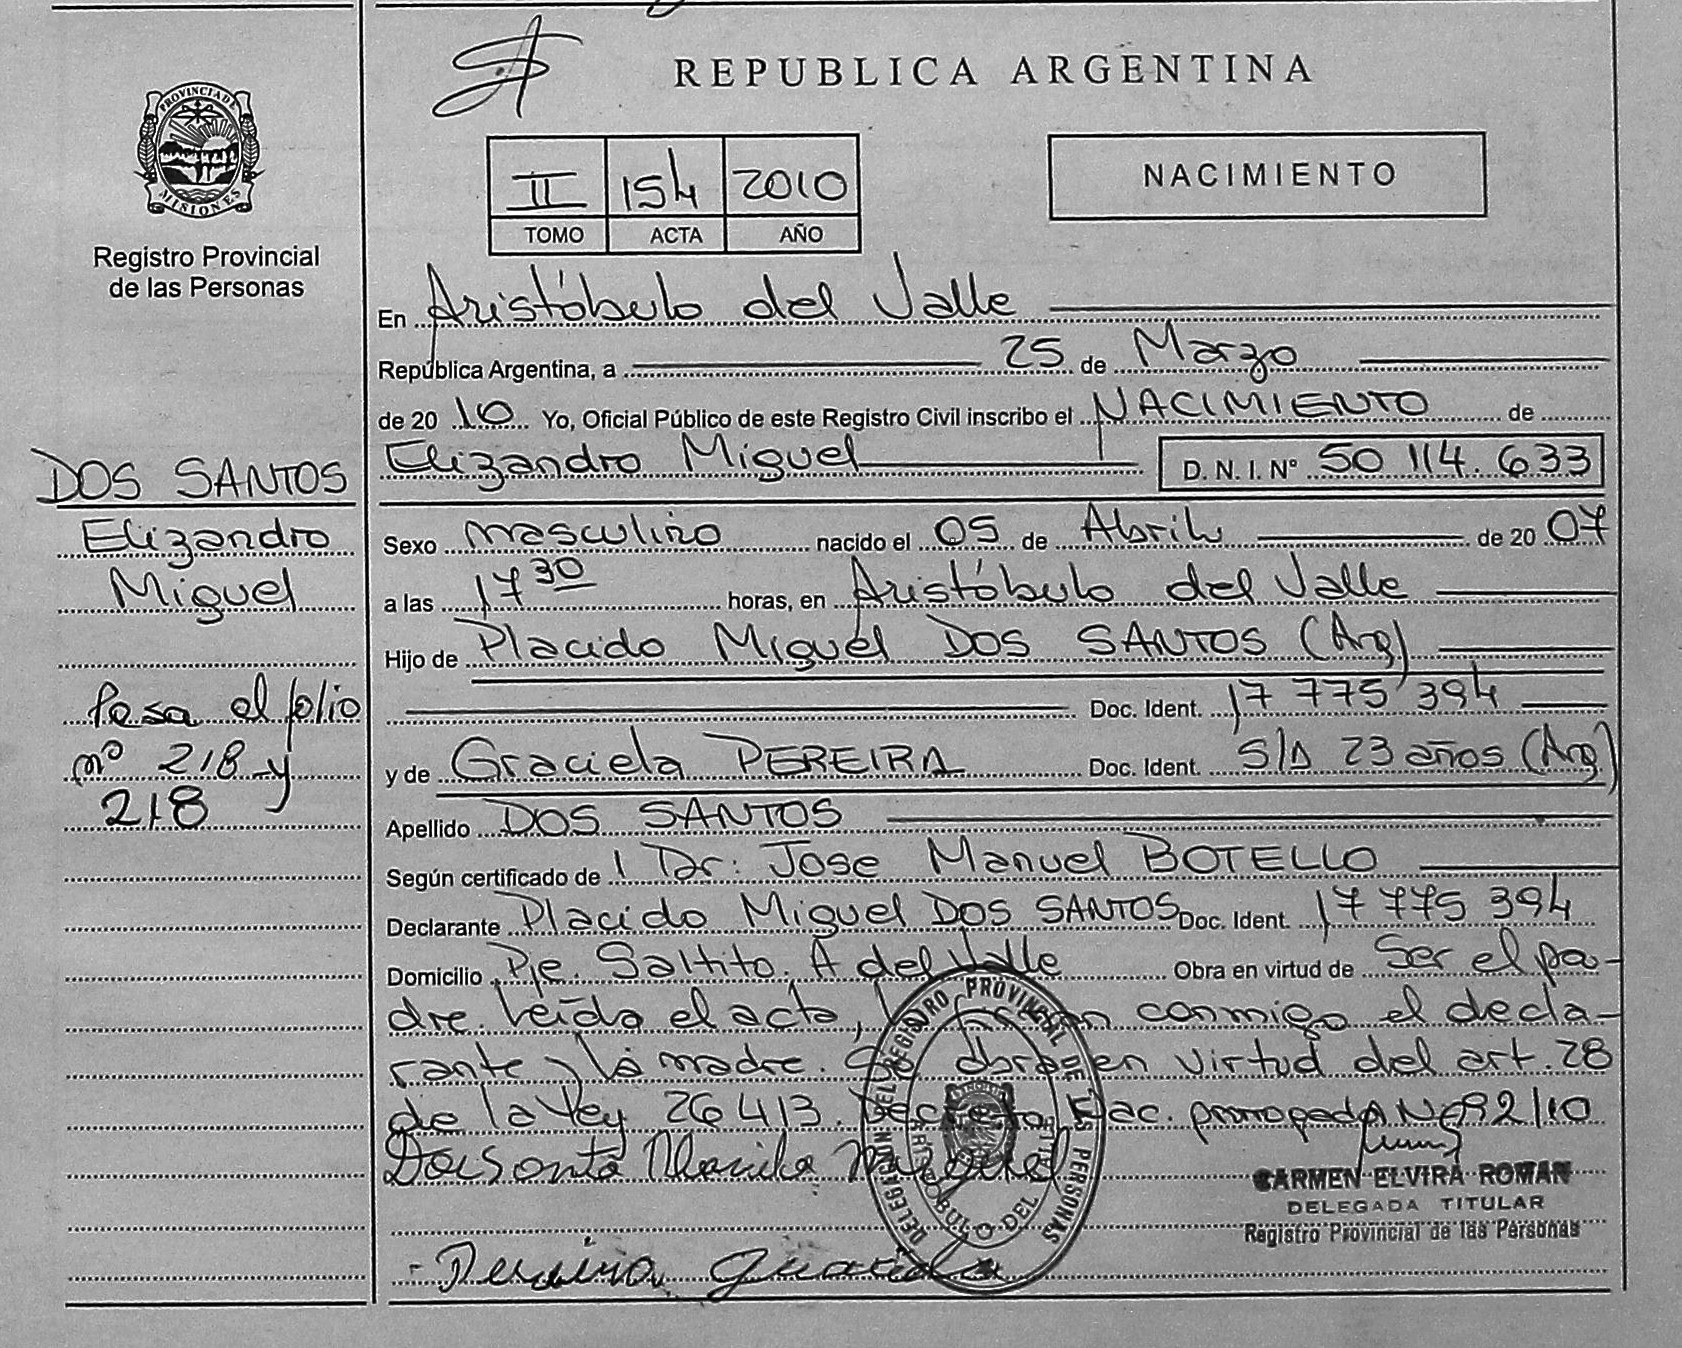 REPUBLICA ARGENTINA
PROVINCIA DE
MISIONES
Registro Provincial
de las Personas
II 154 2010
TOMO ACTA AÑO
NACIMIENTO
En Aristóbulo del Valle
República Argentina, a 25 de Marzo
de 2010 Yo, Oficial Público de este Registro Civil inscribo el NACIMIENTO de
Elizandro Miguel D.N.I.Nº 50 114. 633
Sexo masculino nacido el 05 de Abril de 2007
a las 17 30 horas, en Aristóbulo del Valle
Hijo de Placido Miguel DOS SANTOS (Arg)
Doc. Ident. 17 775 394
y de Graciela PEREIRA Doc. Ident. S/D 23 años (Arg)
Apellido DOS SANTOS
Según certificado de 1 Dr: Jose Manuel BOTELLO
Declarante Placido Miguel DOS SANTOS Doc. Ident. 17 775 394
Domicilio Pje. Saltito. A del Valle Obra en virtud de Ser el pa-
dre. Leída el acta, la firman conmigo el decla-
rante y la madre. Se obra en virtud del art. 28
de la Ley 26 413. Decreto Nac. prorrogado Nº 92/10
DOS SANTOS
Elizandro
Miguel
Pasa al folio
nº 218 y
218
DELEGACION DEL REGISTRO PROVINCIAL DE LAS PERSONAS
ARISTOBULO DEL
CARMEN ELVIRA ROMAN
DELEGADA TITULAR
Registro Provincial de las Personas